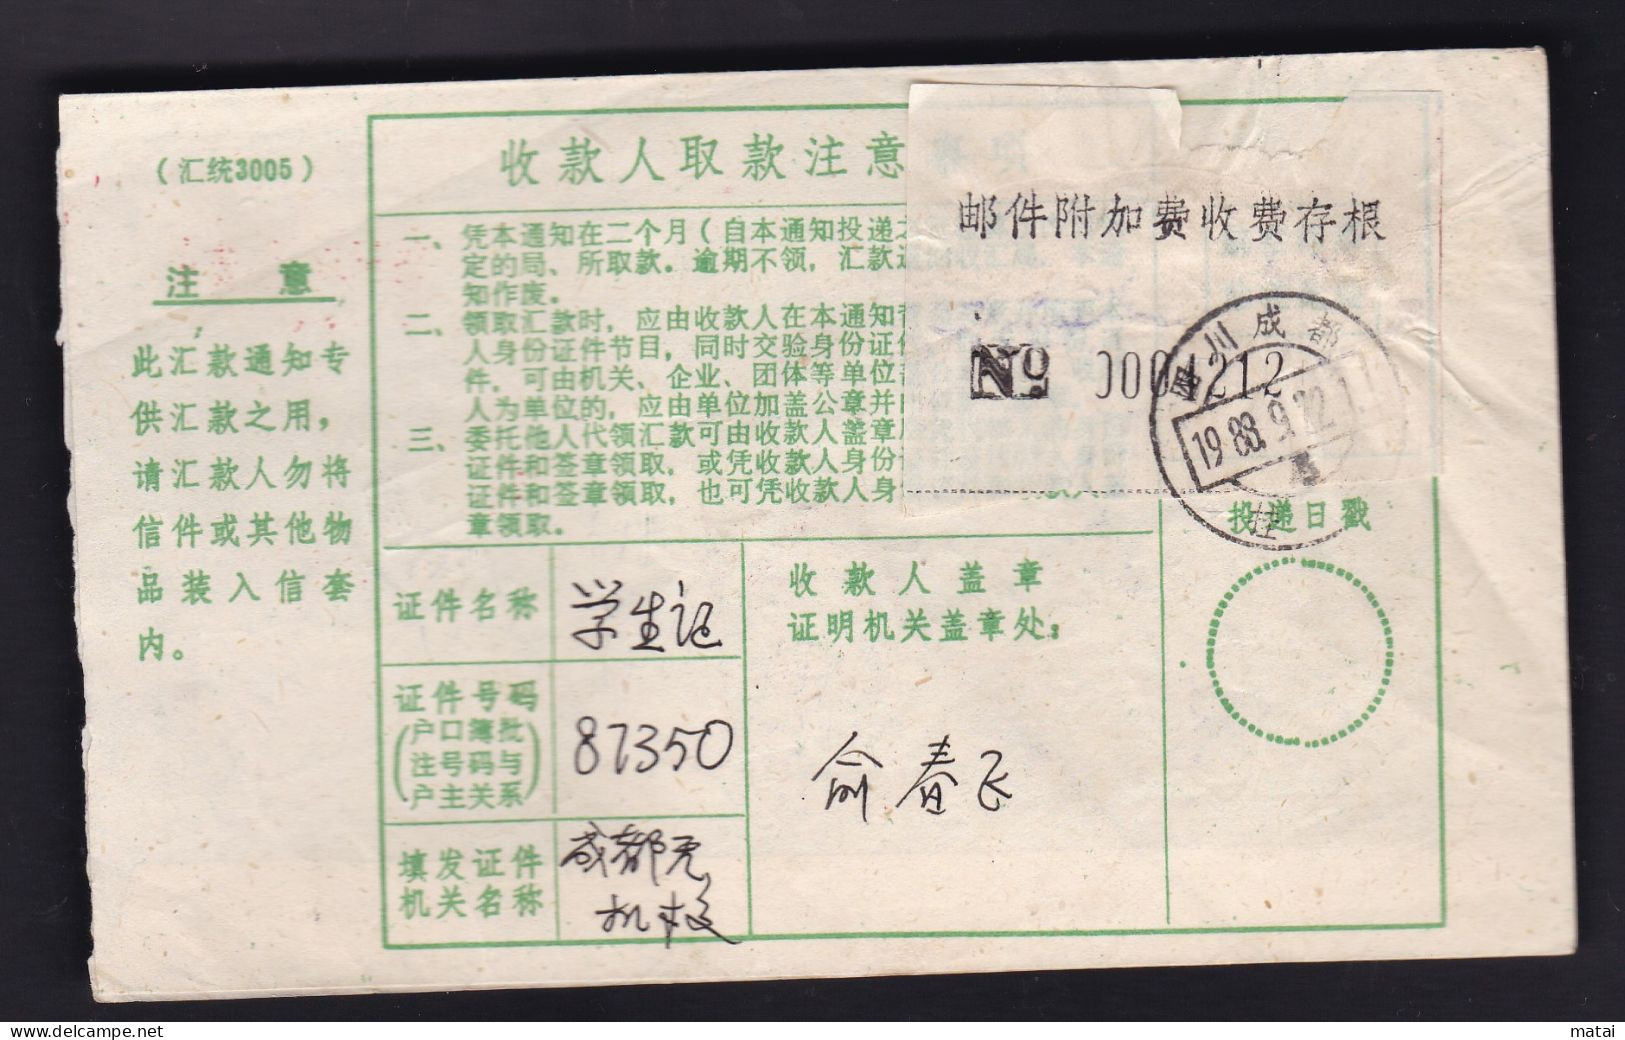 （汇统3005）
注 意
此汇款通知专
供汇款之用，
请汇款人勿将
信件或其他物
品装入信套
内。
收款人取款注意
一、凭本通知在二个月（自本通知投递之
定的局、所取款。逾期不领，汇款
知作废。
二、领取汇款时，应由收款人在本通知
人身份证件节目，同时交验身份证
件，可由机关、企业、团体等单位
人为单位的，应由单位加盖公章并
三、委托他人代领汇款可由收款人盖章
证件和签章领取，或凭收款人身份
证件和签章领取，也可凭收款人身
章领取。
邮件附加费收费存根
No 0004212
四川成都
1988.9.12.
投递日戳
证件名称
学生证
证件号码
（户口簿批
注号码与
户主关系）
87350
填发证件
机关名称
成都无
机校
收款人盖章
证明机关盖章处：
俞春飞
matai